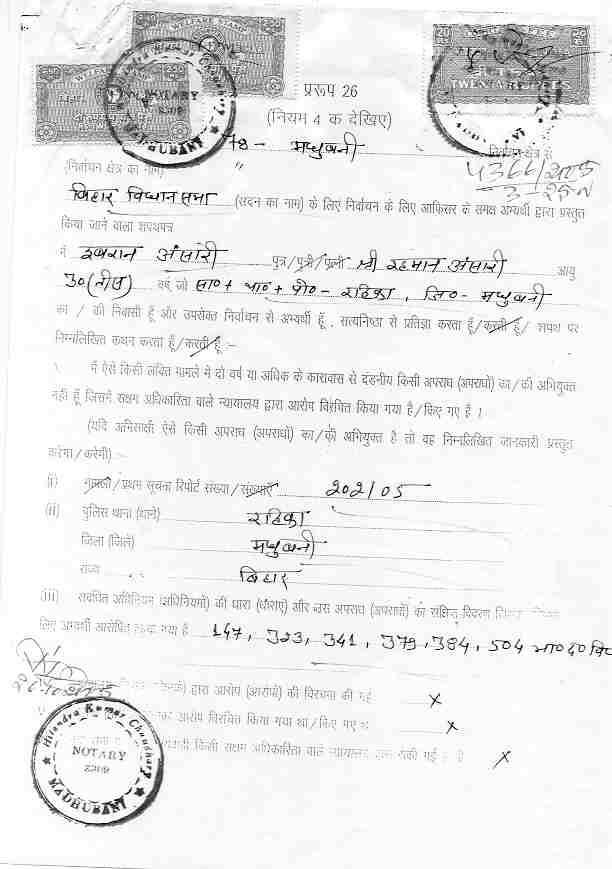 WELFARE STAMP
WELFARE STAMP
TWENTY RUPEES
NOTARY
MADHUBANI
प्ररूप 26
(नियम 4 क देखिए)
78- मधुबनी निर्वाचन क्षेत्र से
(निर्वाचन क्षेत्र का नाम)
बिहार विधान सभा (सदन का नाम) के लिए निर्वाचन के लिए आफिसर के समक्ष अभ्यर्थी द्वारा प्रस्तुत
किया जाने वाला शपथपत्र
मैं इबरान अंसारी पुत्र/पुत्री/पत्नी श्री रहमान अंसारी आयु
30 (तीस) वर्ष, जो सा०+ था०+ पो०- रहिका, जि०- मधुबनी
का / की निवासी हूँ और उपरोक्त निर्वाचन से अभ्यर्थी हूँ, सत्यनिष्ठा से प्रतिज्ञा करता हूँ/करती हूँ/ शपथ पर
निम्नलिखित कथन करता हूँ/करती हूँ :-
मैं ऐसे किसी लंबित मामले में दो वर्ष या अधिक के कारावास से दंडनीय किसी अपराध (अपराधों) का/की अभियुक्त
नहीं हूँ जिसमें सक्षम अधिकारिता वाले न्यायालय द्वारा आरोप विरचित किया गया है/किए गए हैं ।
(यदि अभिसाक्षी ऐसे किसी अपराध (अपराधों) का/की अभियुक्त है तो वह निम्नलिखित जानकारी प्रस्तुत
करेगा/करेगी) :-
(i) मामला/प्रथम सूचना रिपोर्ट संख्या/संख्याएँ 202/05
(ii) पुलिस थाना (थाने) रहिका
जिला (जिले) मधुबनी
राज्य बिहार
(iii) संबंधित अधिनियम (अधिनियमों) की धारा (धाराएं) और उस अपराध (अपराधों) का संक्षिप्त विवरण
लिए अभ्यर्थी आरोपित किया गया है 147, 323, 341, 379, 384, 504 भा०द०वि०
द्वारा आरोप (आरोपों) की विरचना की गई x
आरोप विरचित किया गया था/किए गए थे x
किसी सक्षम अधिकारिता वाले न्यायालय द्वारा रोकी गई है x
Hitendra Kumar Choudhary
NOTARY
2309
MADHUBANI